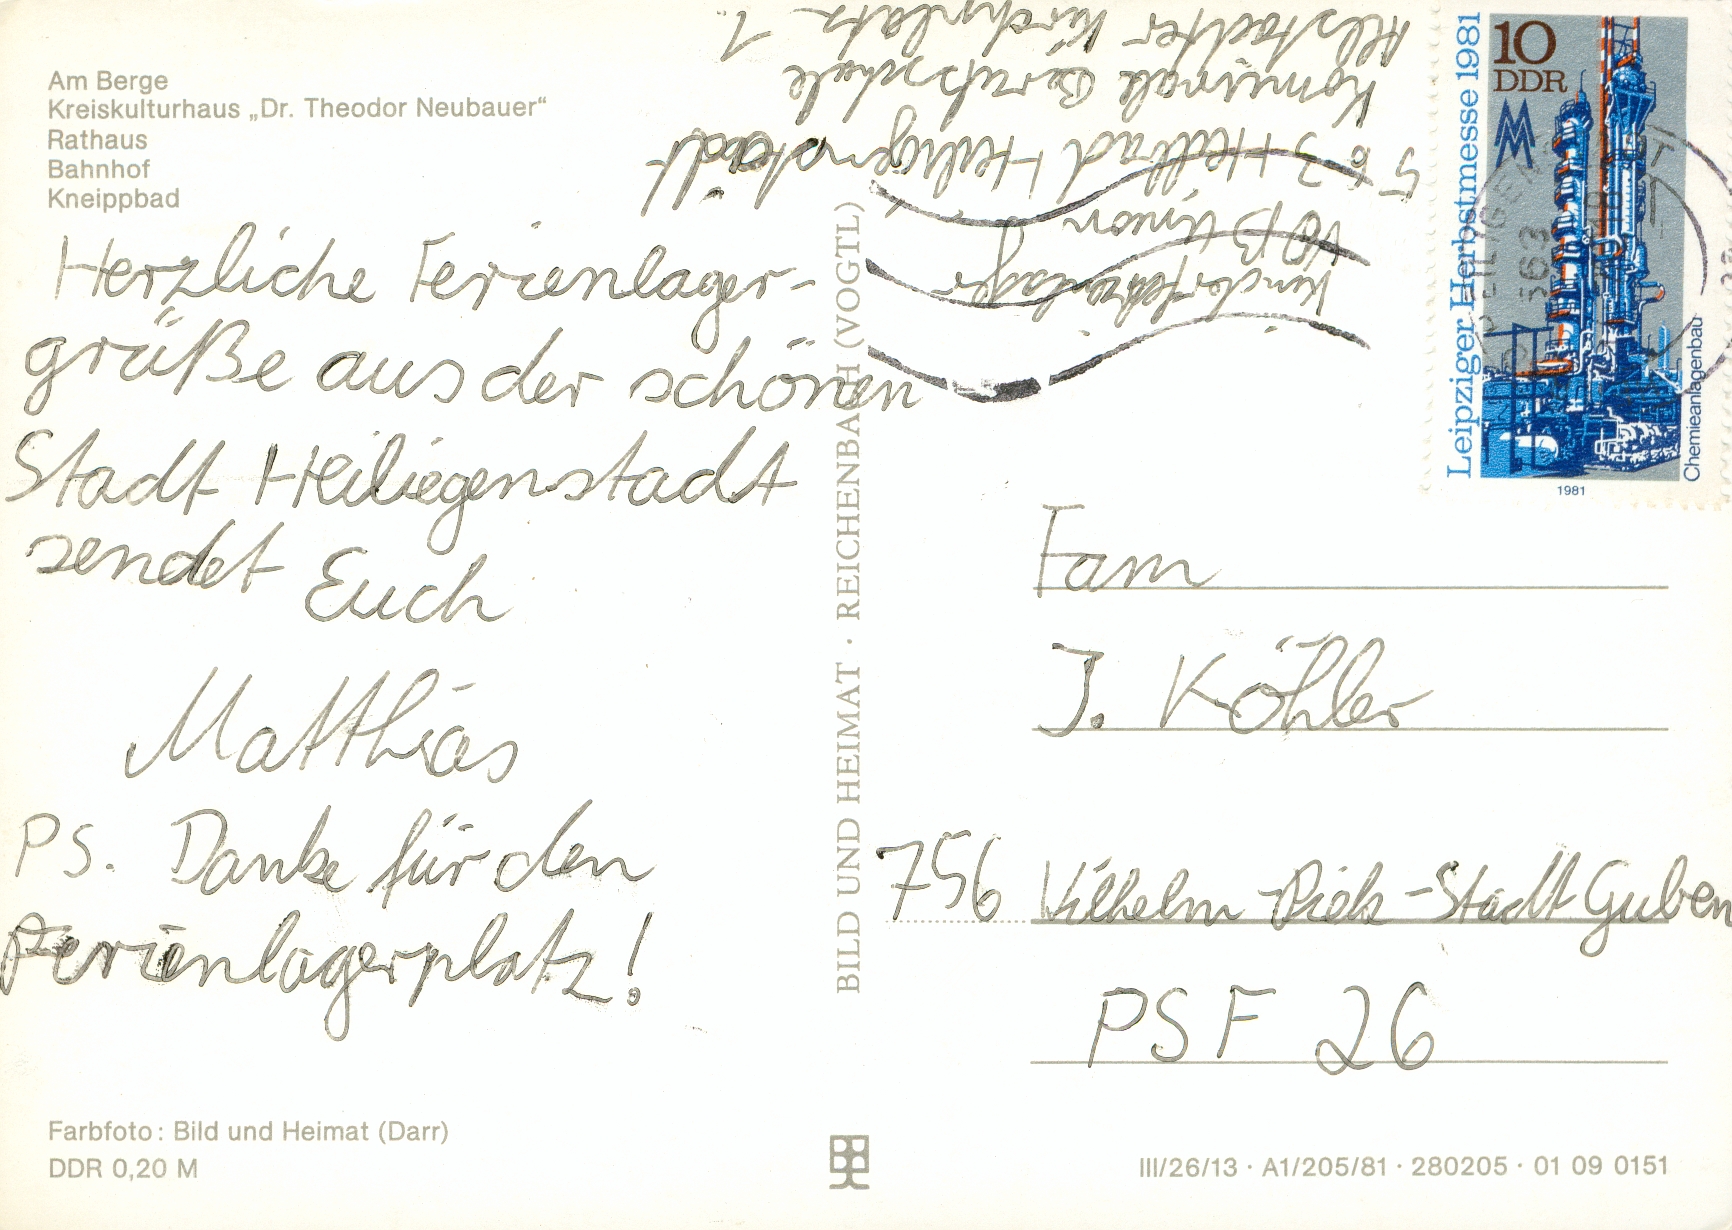 Am Berge
Kreiskulturhaus „Dr. Theodor Neubauer“
Rathaus
Bahnhof
Kneippbad
Herzliche Ferienlager-
grüße aus der schönen
Stadt Heiliegenstadt
sendet Euch
Matthias
PS. Danke für den
Ferienlagerplatz!
Farbfoto: Bild und Heimat (Darr)
DDR 0,20 M
BILD UND HEIMAT · REICHENBACH (VOGTL)
Kinderferienlager
VOB Union
563 Heilbad Heiligenstadt
Komunale Berufsschule
Altstädter Kirchplatz 1.
Leipziger Herbstmesse 1981
10
DDR
MM
Chemieanlagenbau
1981
563
Fam
J. Köhler
756 Wilhelm-Pieck-Stadt Guben
PSF 26
III/26/13 · A1/205/81 · 280205 · 01 09 0151